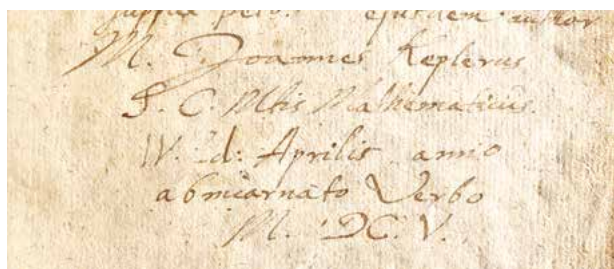 ejusdem author
M. Joannes Keplerus
S. C. Mtis Mathematicus.
IV. Id: Aprilis anno
ab incarnato Verbo
M. DC. V.